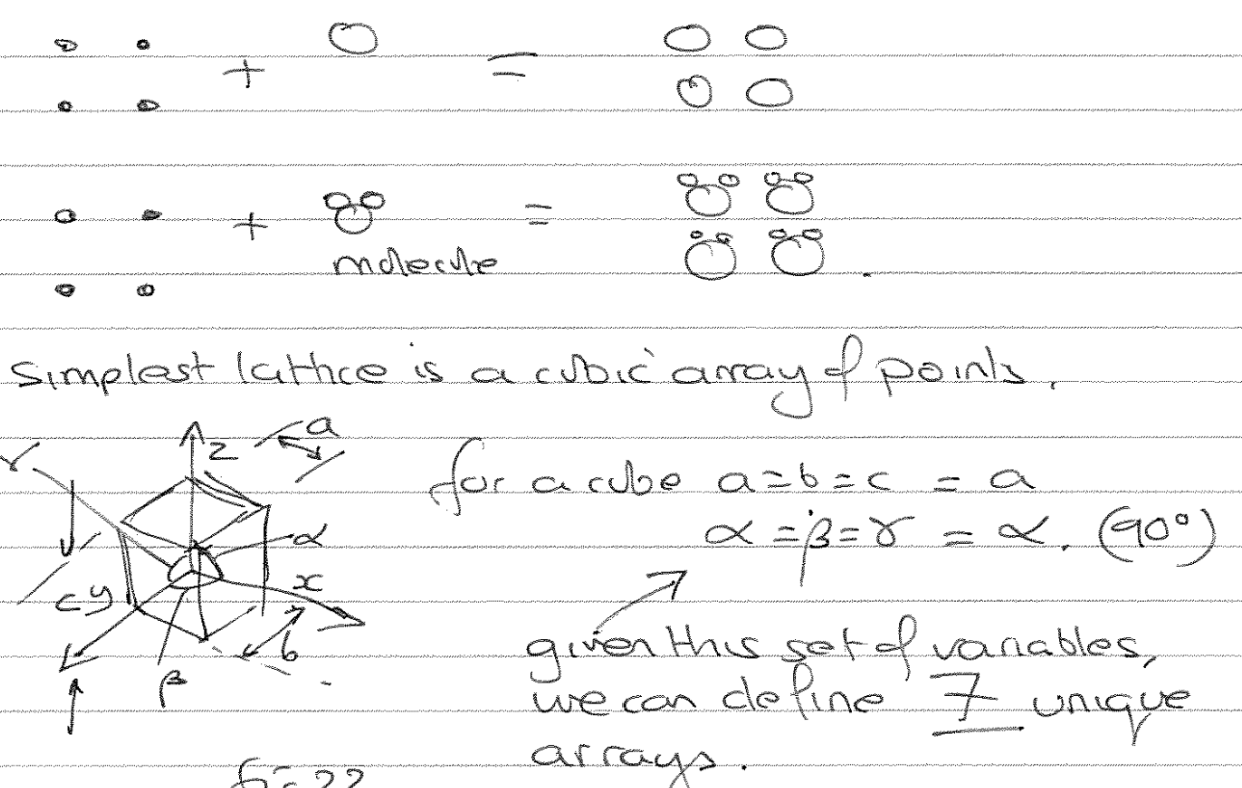 + =
+ =
molecule
simplest lattice is a cubic array of points.
z a
γ
for a cube a=b=c = a
α
α=β=γ = α. (90°)
x
c y
b
β
given this set of variables,
we can define 7 unique
arrays.